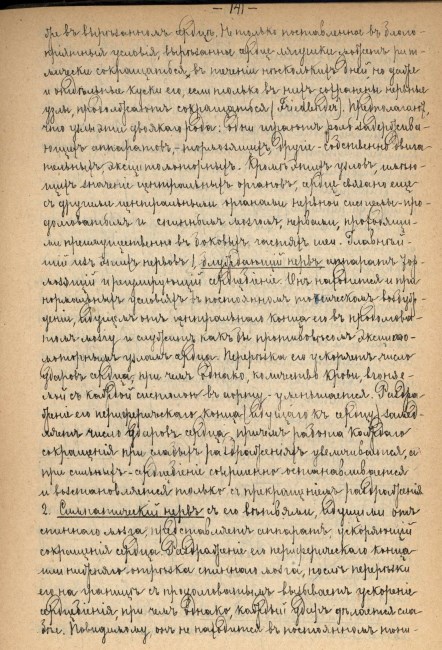 — 141 —
дра въ вырѣзанномъ сердцѣ. Не только поставленное въ благо-
пріятныя условія, вырѣзанное сердце лягушки можетъ рит-
мически сокращаться въ теченіе нѣсколькихъ дней, но даже
и отдѣльные куски его, если только въ нихъ сохранены нервные
узлы, продолжаютъ сокращаться (Friedländer). Предполагаютъ,
что узлы эти двоякаго рода: одни играютъ роль задержива-
ющихъ аппаратовъ, тормозящихъ, другіе - собственно двига-
тельныхъ, эксцитомоторныхъ. Кромѣ этихъ узловъ, имѣю-
щихъ значеніе центральныхъ органовъ, сердце связано еще
съ другими центральными органами нервной системы - про-
долговатымъ и спиннымъ мозгомъ, нервами, проходящи-
ми преимущественно въ боковыхъ частяхъ шеи. Главнѣй-
шій изъ этихъ нервовъ 1, блуждающій нервъ аппаратъ тор-
мозящій и регулирующій сердцебіеніе. Онъ находится и при
нормальныхъ условіяхъ въ постоянномъ тоническомъ возбуж-
деніи, идущемъ отъ центральнаго конца его въ продолгова-
томъ мозгу и служитъ какъ бы противовѣсомъ эксцито-
моторнымъ узламъ сердца. Перерѣзка его ускоряетъ число
ударовъ сердца, при чемъ, однако, количество крови, вгоняе-
мой съ каждой систолой въ аорту - уменьшается. Раздра-
женіе его периферическаго конца (идущаго къ сердцу) замед-
ляетъ число ударовъ сердца, причемъ работа каждаго
сокращенія при слабыхъ раздраженіяхъ увеличивается, а
при сильныхъ - сердцебіеніе совершенно останавливается
и возстановляется только съ прекращеніемъ раздраженія
2. Симпатическій нервъ съ его вѣтвями, идущими отъ
спиннаго мозга, представляетъ аппаратъ, ускоряющій
сокращенія сердца. Раздраженіе его периферическаго конца
или шейнаго отрѣзка спиннаго мозга, послѣ перерѣзки
его на границѣ съ продолговатымъ вызываетъ ускореніе
сердцебіенія при чемъ, однако, каждый ударъ дѣлается сла-
бѣе. Повидимому, онъ не находится въ постоянномъ тони-